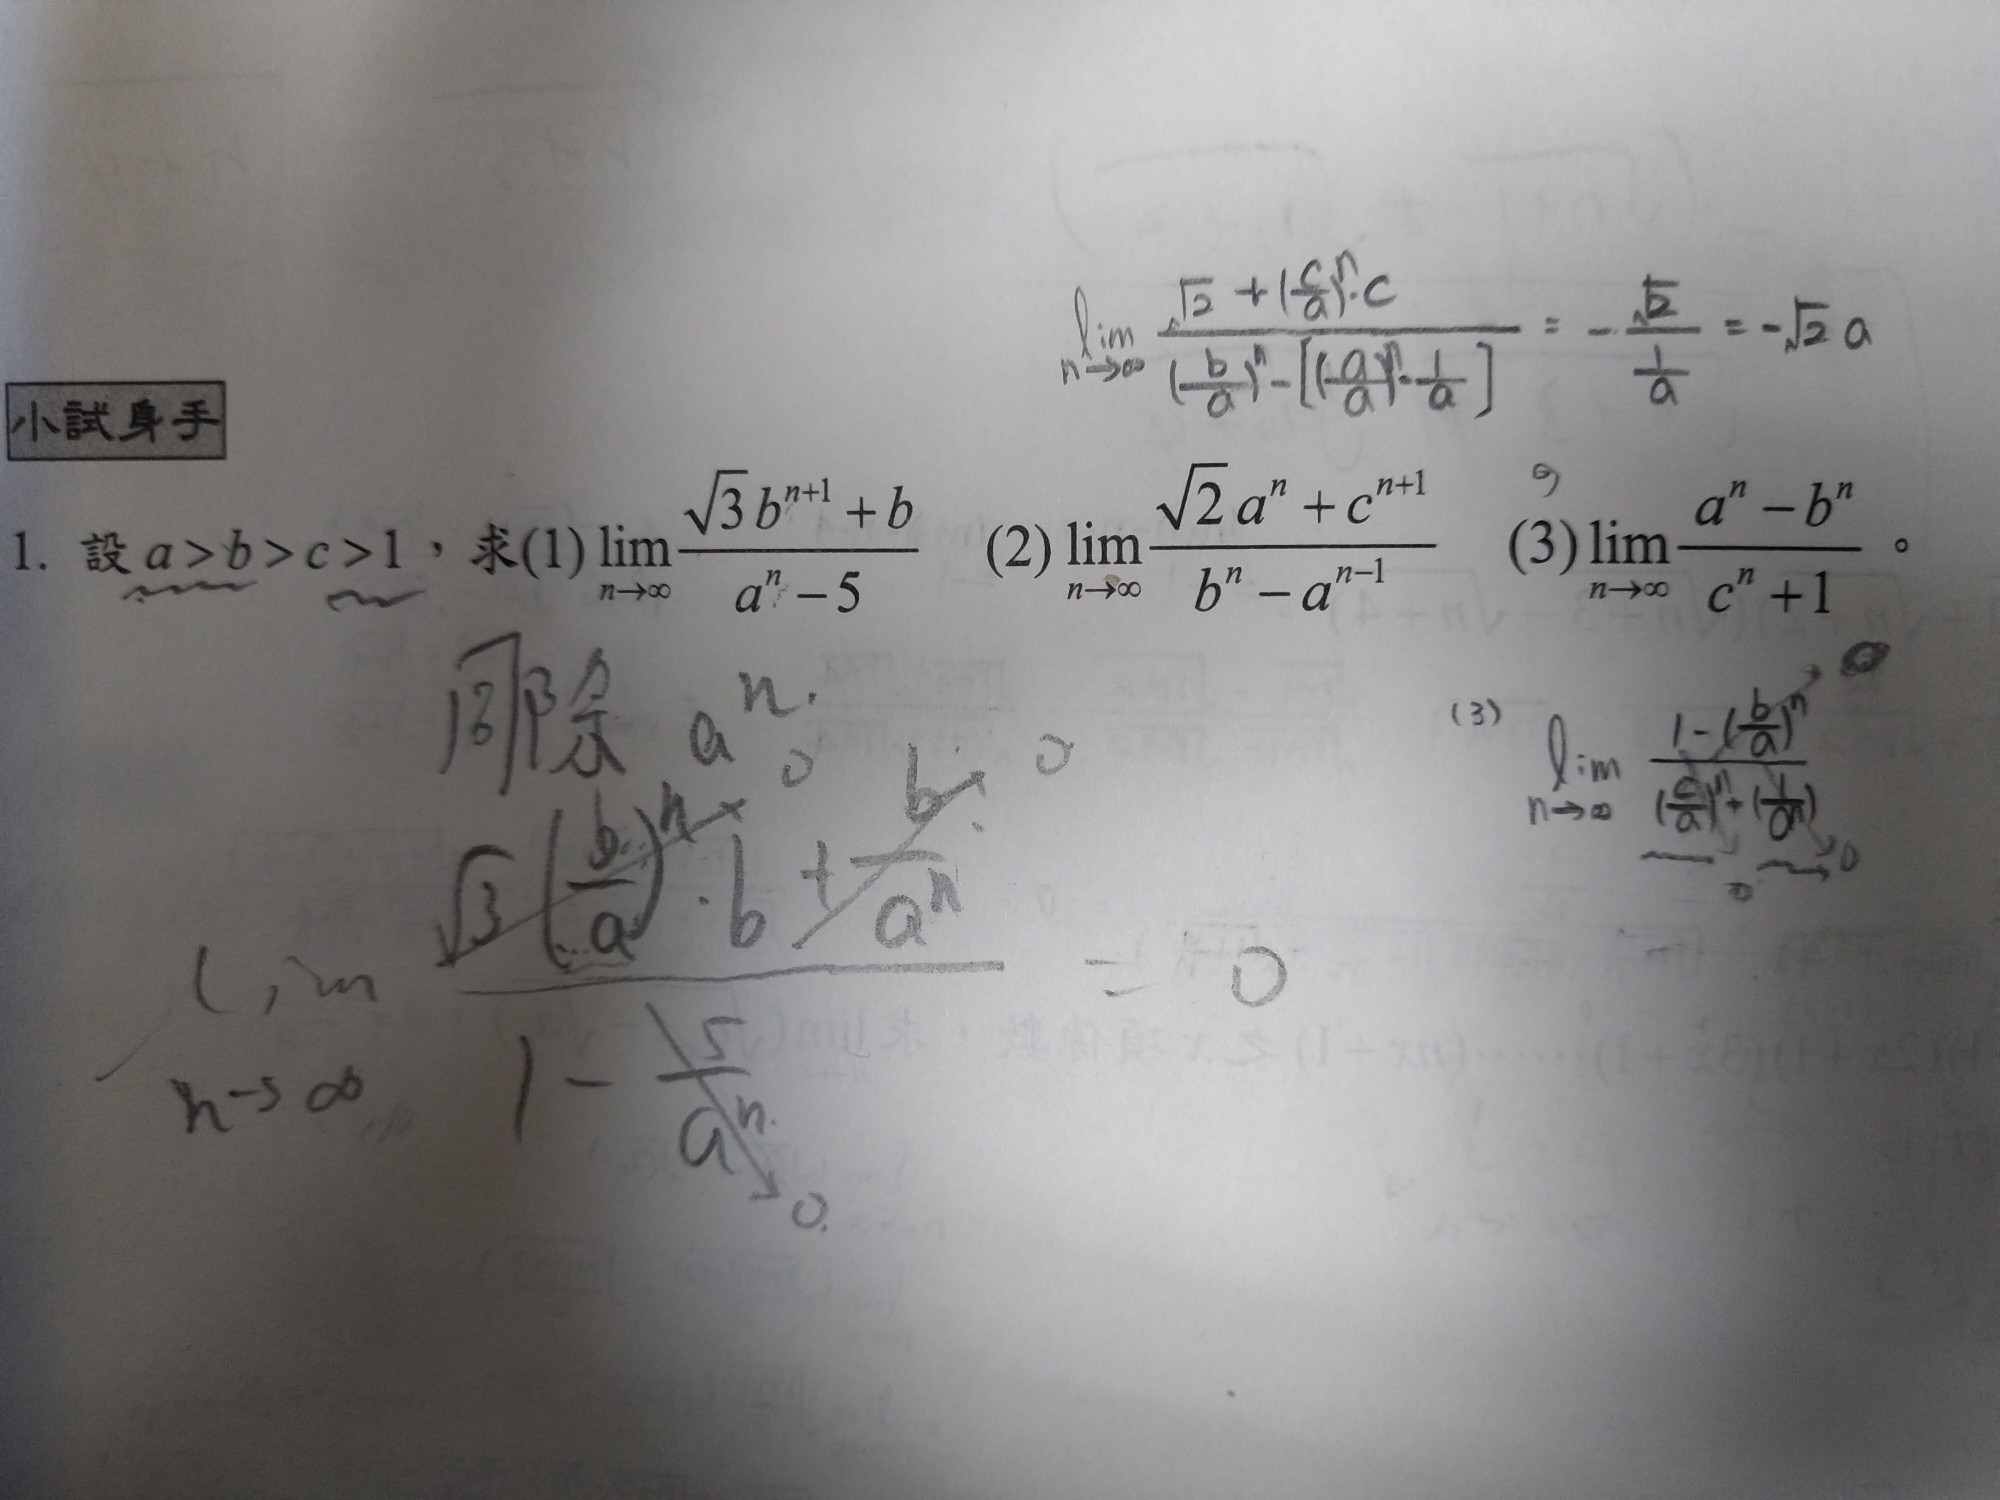 lim n→∞ (√2 + (c/a)^n · c) / ((b/a)^n − [(a/a)^n · 1/a]) = − √2 / (1/a) = −√2 a
小試身手
1. 設 a > b > c > 1，求(1) lim n→∞ (√3 b^{n+1} + b) / (a^n − 5) (2) lim n→∞ (√2 a^n + c^{n+1}) / (b^n − a^{n−1}) (3) lim n→∞ (a^n − b^n) / (c^n + 1)。
同除 a^n.
(3) lim n→∞ (1 − (b/a)^n) / ((c/a)^n + (1/a^n)) 0 0
lim n→∞ (√3 (b/a)^n · b + b/a^n) / (1 − 5/a^n) = 0
0 0
0.